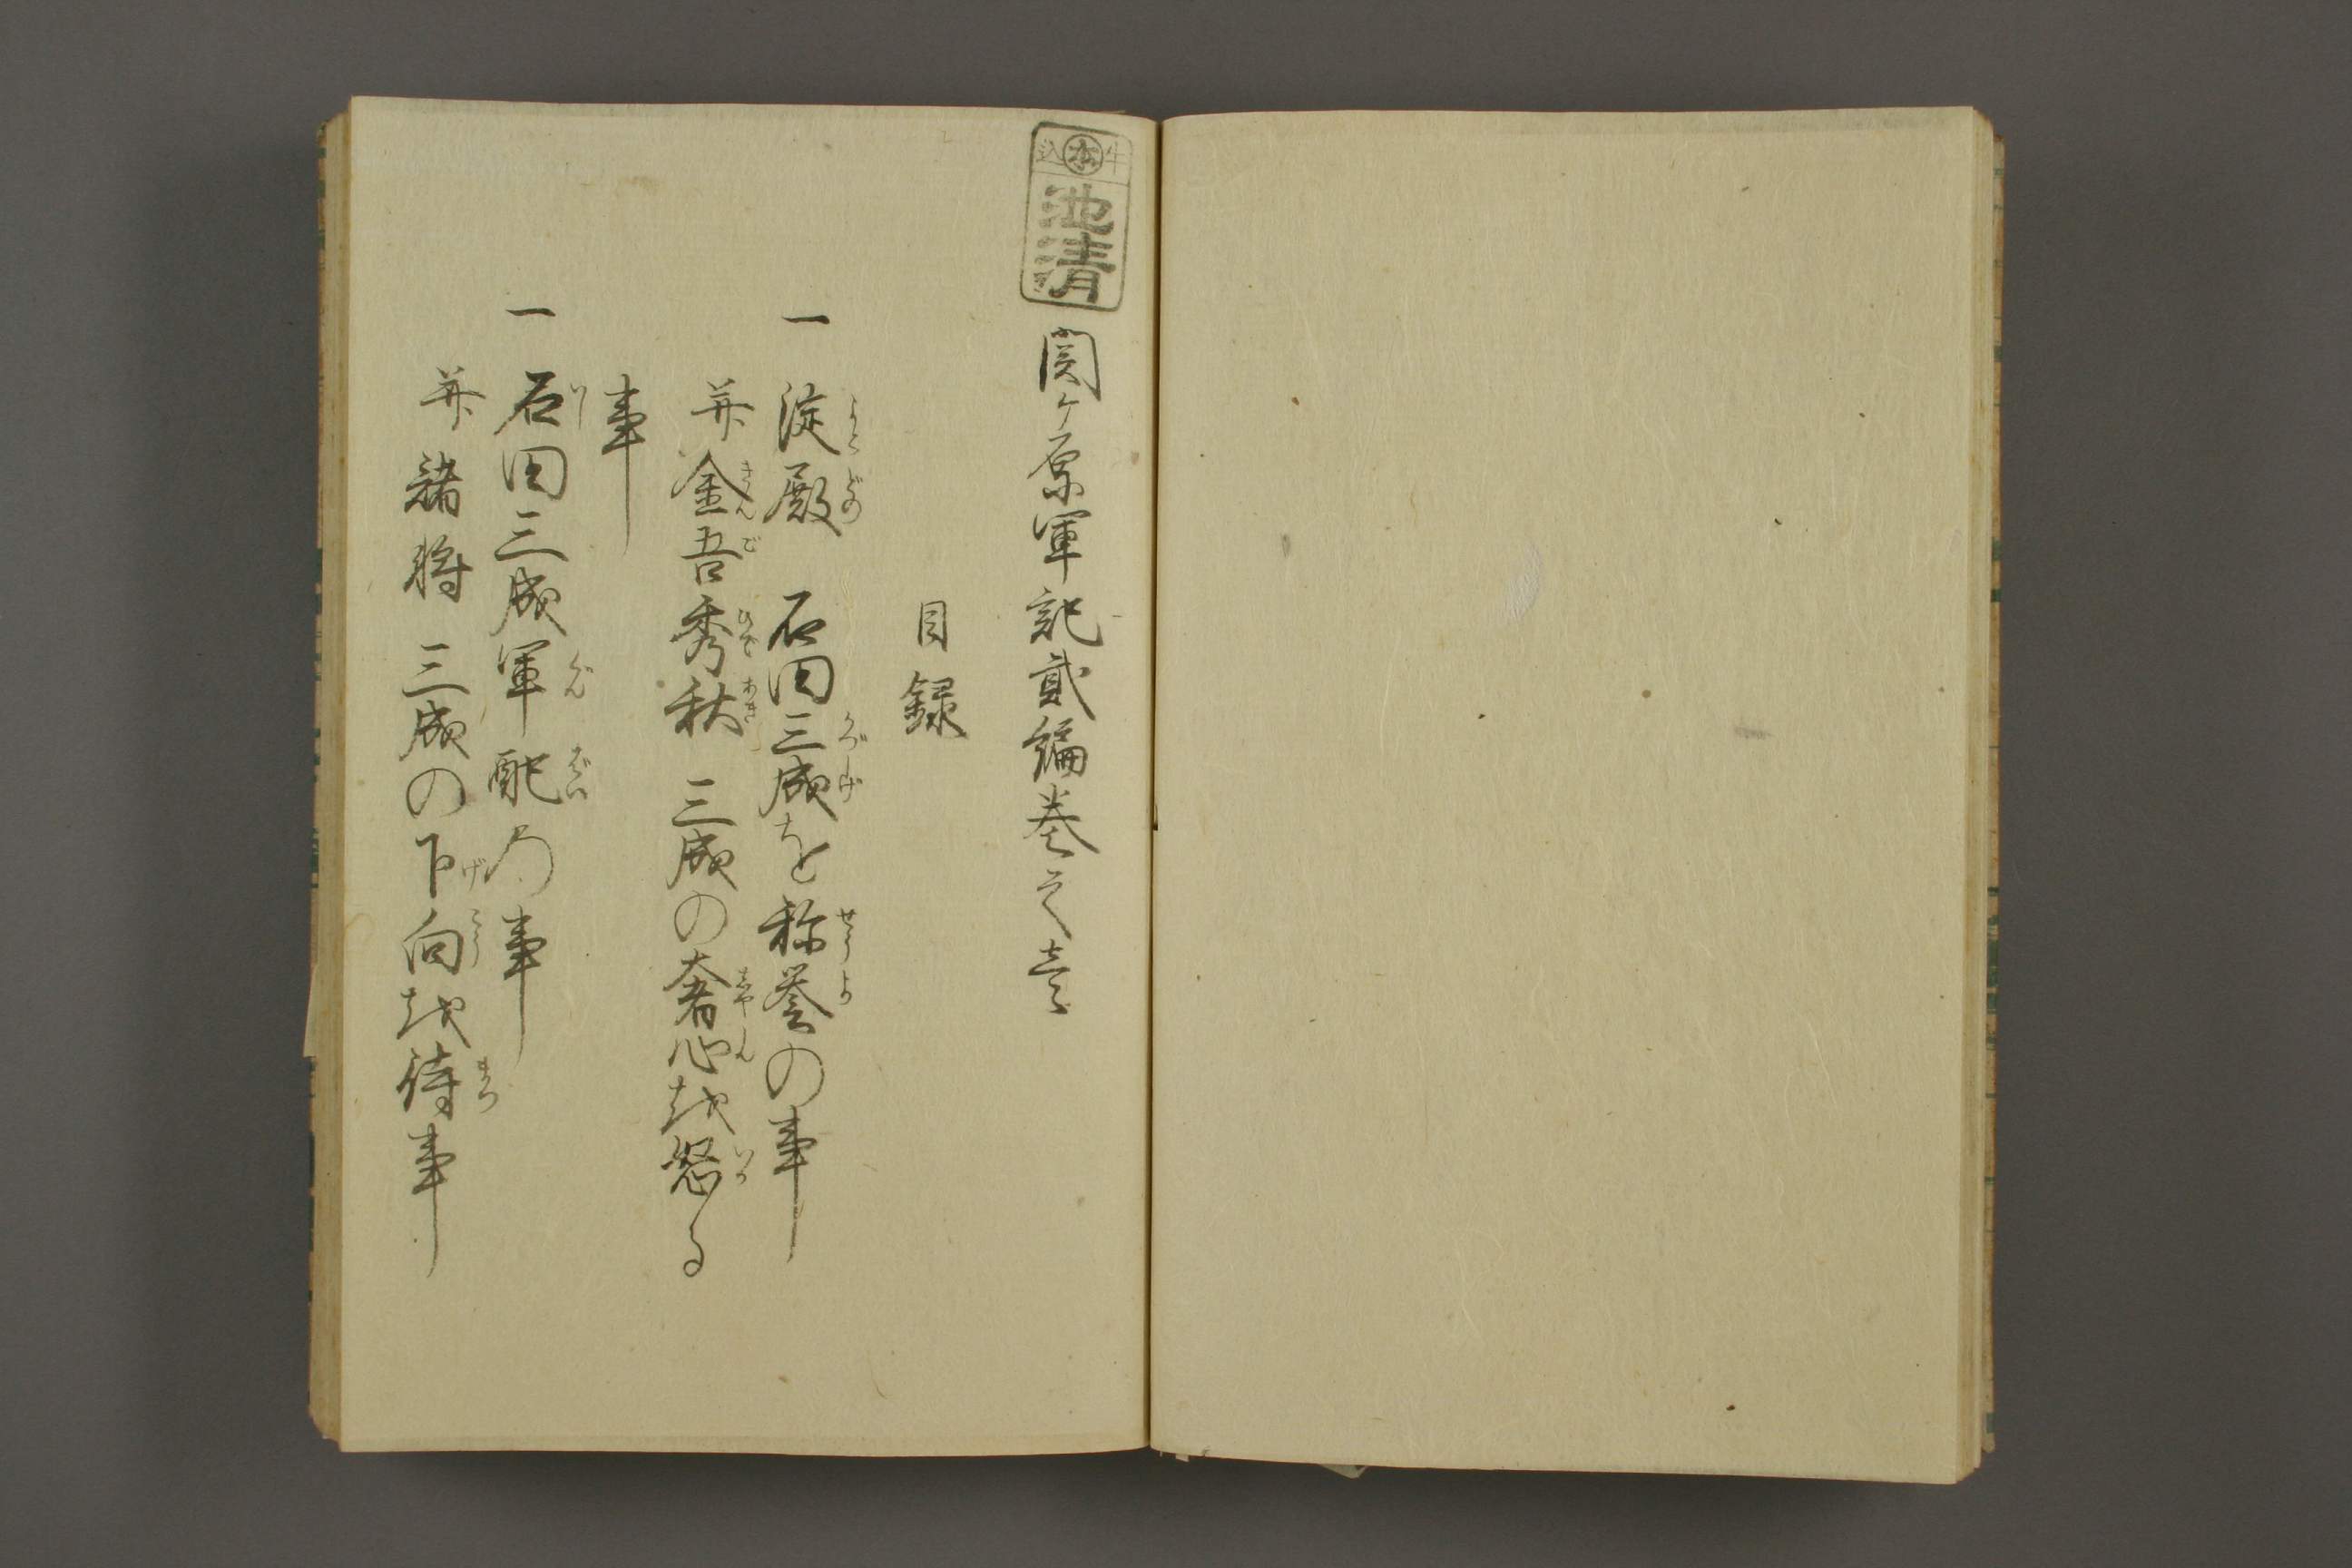 牛込
本
池清
関ケ原軍記貳編巻之壹
目録
一 淀殿 石田三成を称誉の事
并金吾秀秋 三成の奢心越怒る
事
一 石田三成軍配の事
并諸将 三成の下向越待事